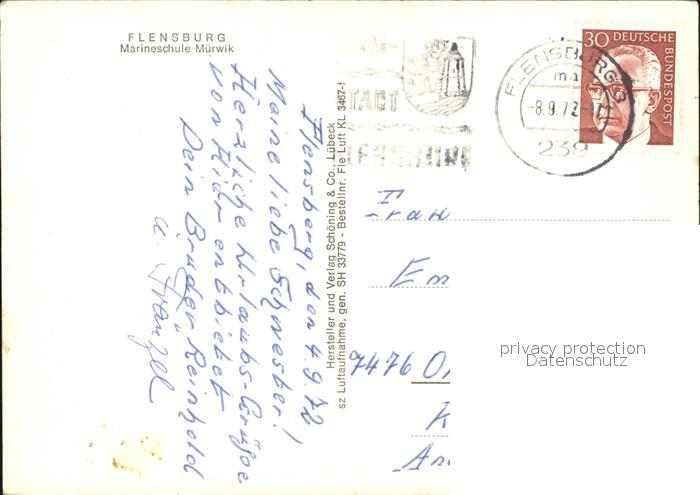 FLENSBURG
Marineschule Mürwik
Flensberg, den 4.9.72
Meine liebe Schwester!
Herzliche Urlaubs-Grüße
von Hier entbietet
Dein Bruder Reinhold
u. Fränzel
Hersteller und Verlag Schöning & Co., Lübeck
sz Luftaufnahme, gen. SH 33779 - Bestellnr. Fle Luft KL 3467-f
STADT
FLENSBURG
FLENSBURG
-8.9.72
239
30 DEUTSCHE
BUNDESPOST
Frau
Em
7476 O
K
An
privacy protection
Datenschutz